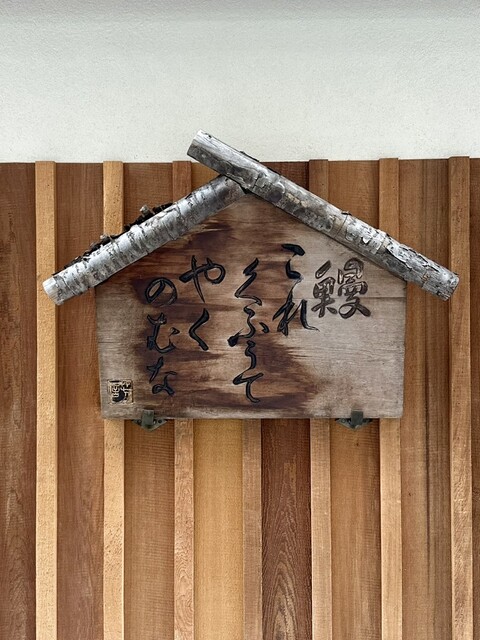 鰻
これ
くふうて
やく
のむな